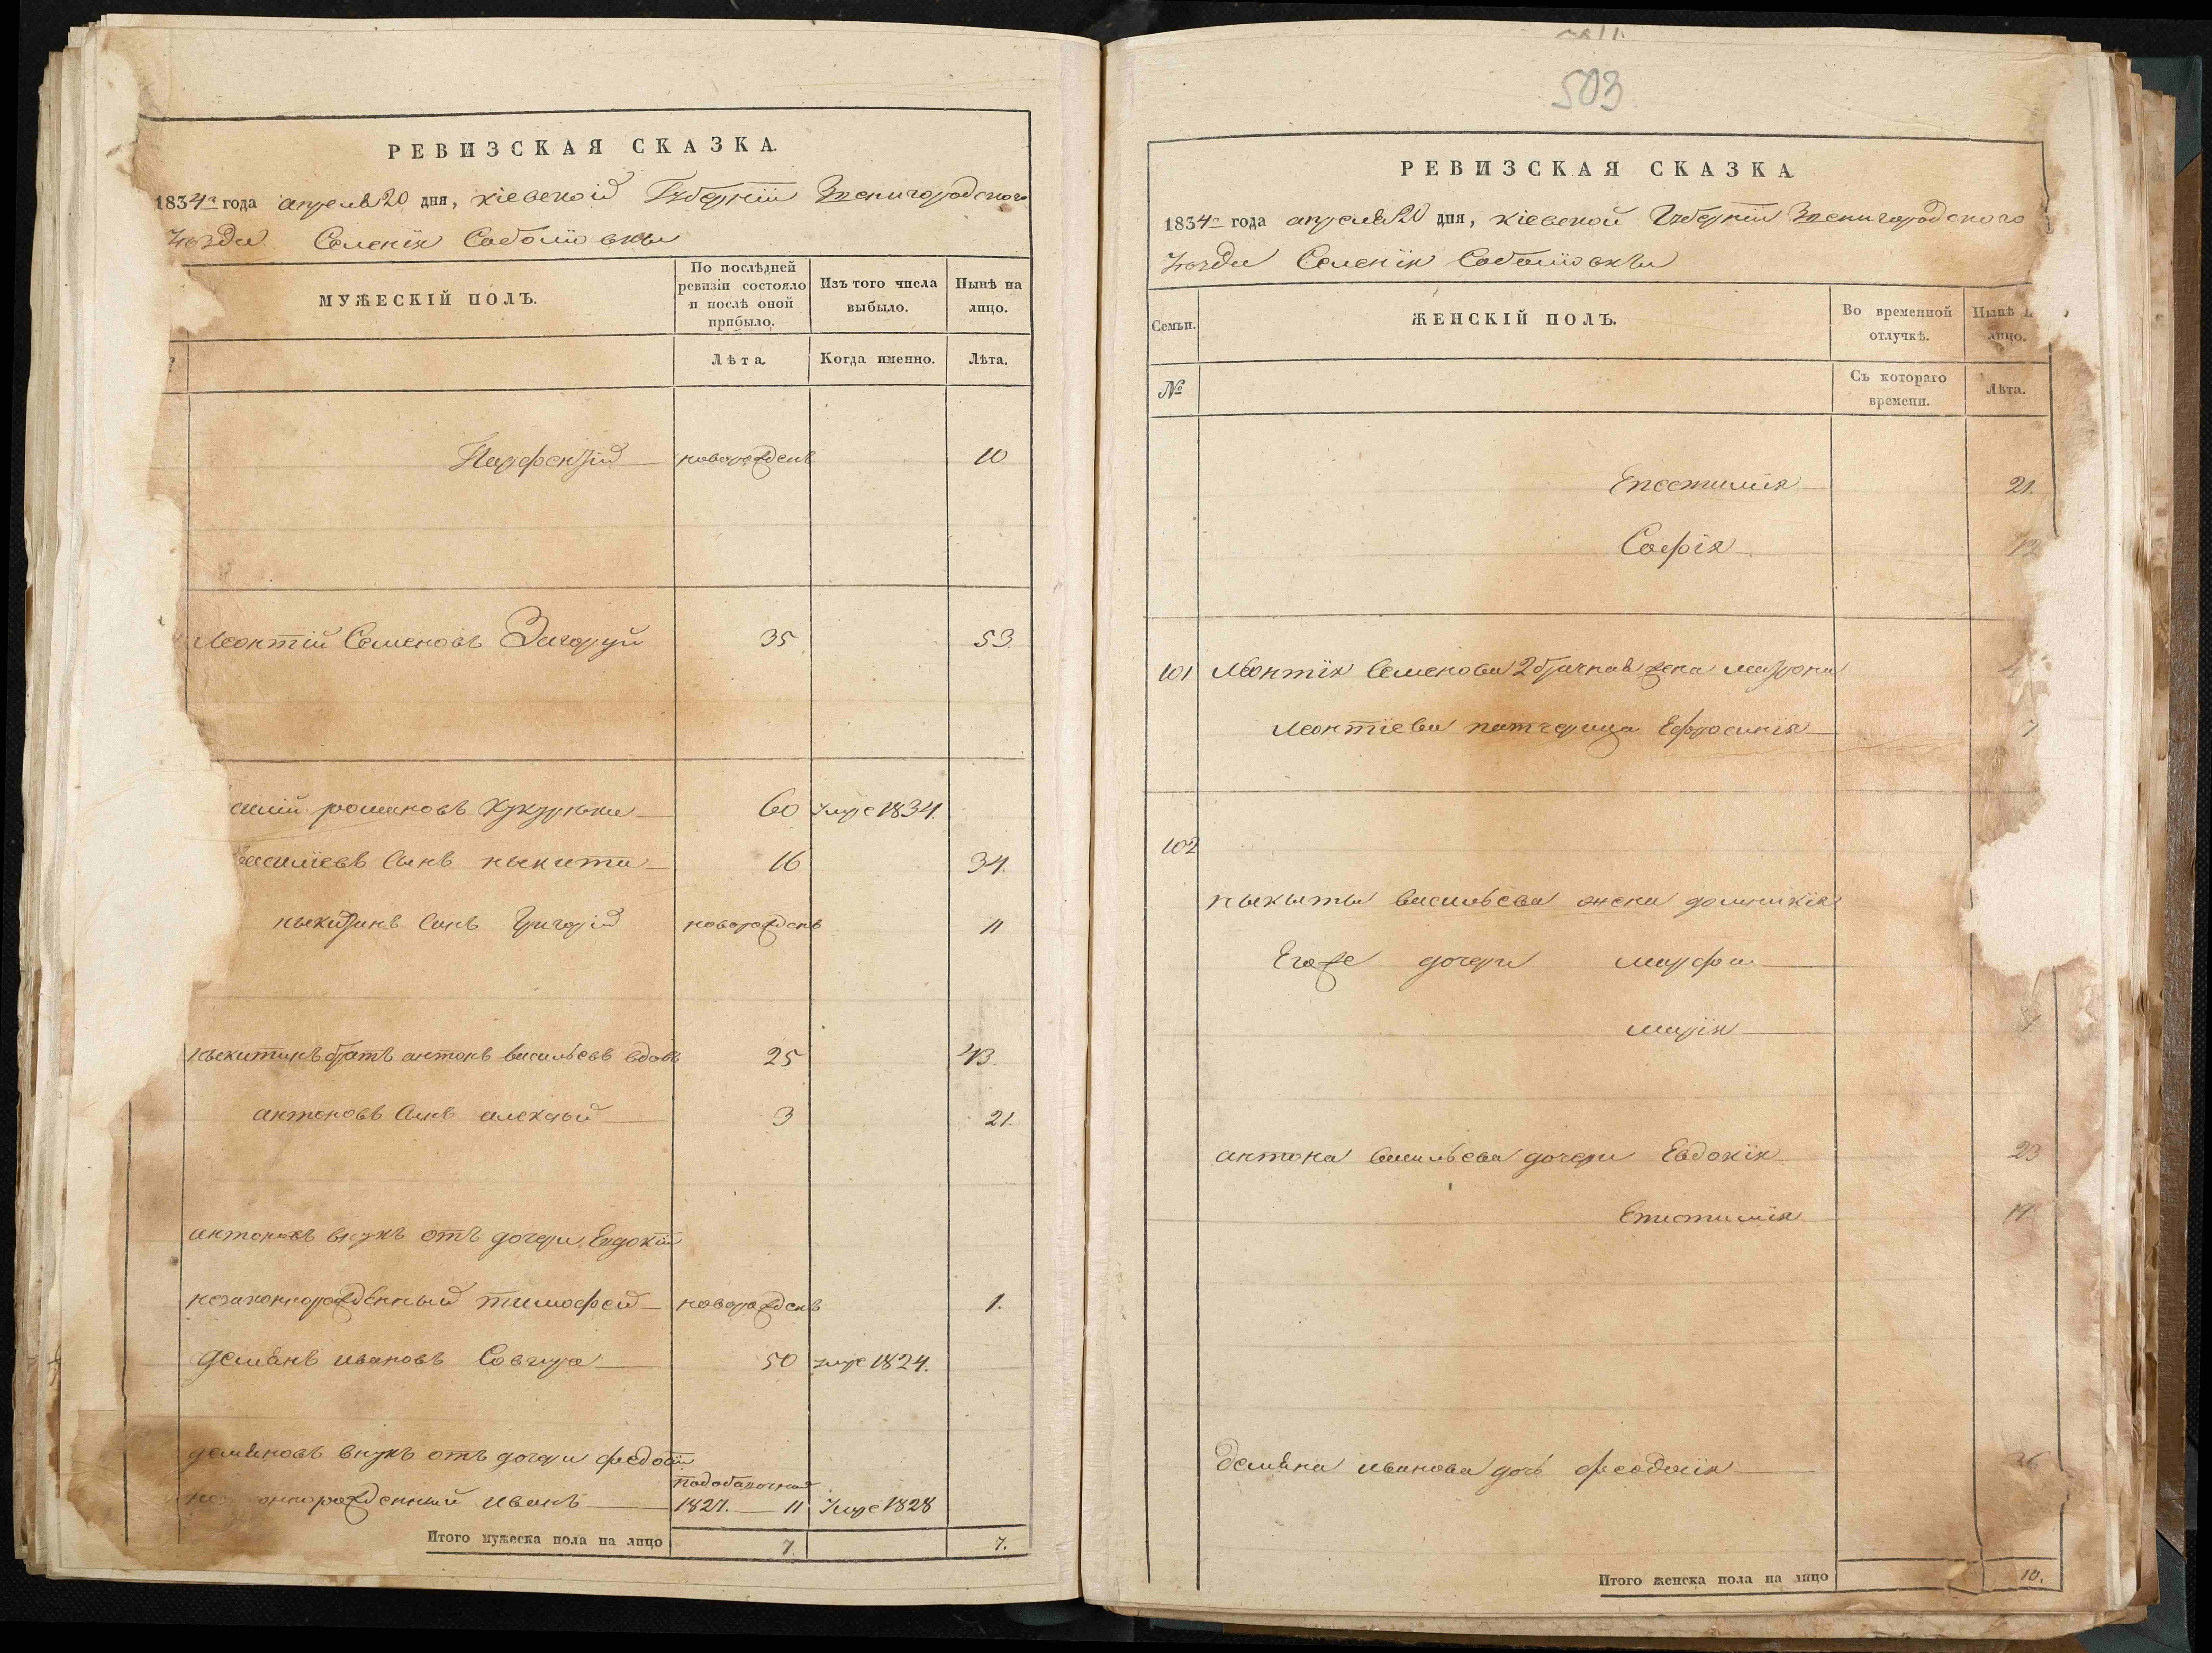 РЕВИЗСКАЯ СКАЗКА.
1834го года апреля 20 дня, Кіевской Губерніи Звенигородского
Уезда Селенія Соболiовки
МУЖЕСКІЙ ПОЛЪ.
По послѣдней ревизіи состояло и послѣ оной прибыло.
Изъ того числа выбыло.
Нынѣ на лицо.
Лѣта.
Когда именно.
Лѣта.
Парфентій новорожденъ 10
Леонтій Семеновъ Загоруй 35 53
романовъ 60 Умре 1834.
сынъ Никита 16 34.
сынъ Григорій новорожденъ 11
Ныкитинъ братъ антонъ васильевъ вдовъ 25 43.
антоновъ сынъ алексѣй 3 21.
антоновъ внукъ отъ дочери Евдокіи
незаконнорожденный тимофей новорожденъ 1.
Демянъ ивановъ 50 умре 1824.
демяновъ внукъ отъ дочери федосіи
иванъ 1827. 11 Умре 1828
Итого мужеска пола на лицо 7. 7.
503
РЕВИЗСКАЯ СКАЗКА
1834го года апреля 20 дня, Кіевской Губерніи Звенигородского
Уезда Селенія Соболiовки
Семьи.
ЖЕНСКІЙ ПОЛЪ.
Во временной отлучкѣ.
Нынѣ лицо.
№
Съ котораго времени.
Лѣта.
Епестимія 21.
Софія
101 Леонтія Семенова 2 брачная жена
Леонтіева патчерица Ефросинія 7
102
Ныкиты васильева жена домникія
Его же дочери марфа
марія
антона васильева дочери Евдокія 23
Епистимія
Демяна иванова дочь феодосія
Итого женска пола на лицо 10.